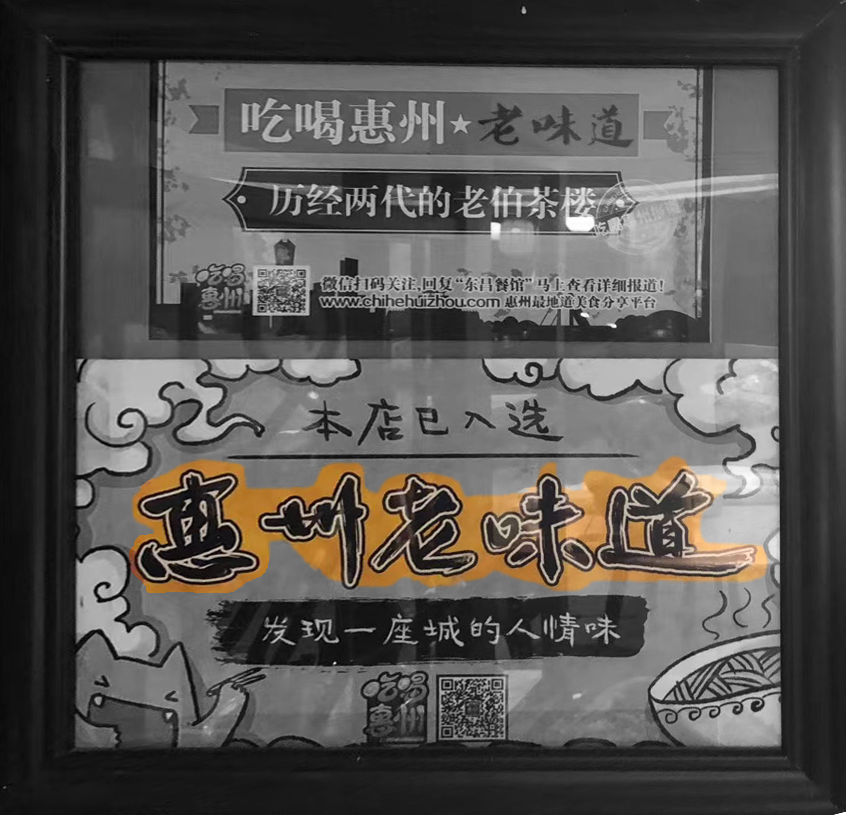 吃喝惠州★老味道
历经两代的老伯茶楼
吃喝
惠州
微信扫码关注,回复“东昌餐馆”马上查看详细报道!
www.chihehuizhou.com 惠州最地道美食分享平台
本店已入选
惠州老味道
发现一座城的人情味
吃喝
惠州